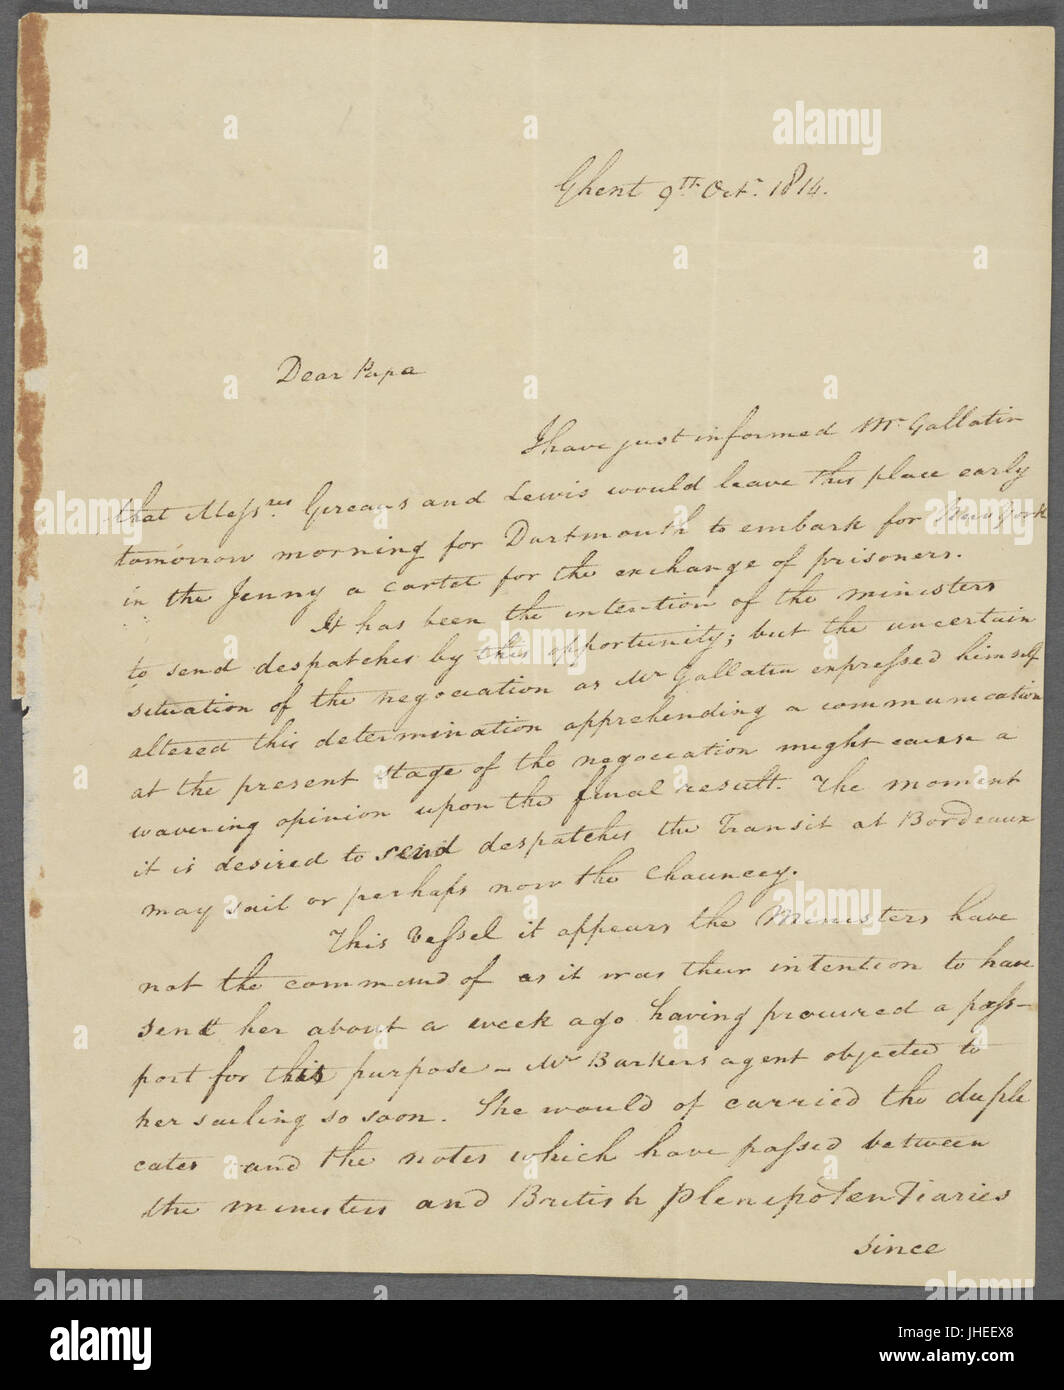 Ghent 9th Octr. 1814.
Dear Papa
I have just informed Mr. Gallatin
that Messres and Lewis would leave this place early
tomorrow morning for Dartmouth to embark for New York
in the Jenny a cartel for the exchange of prisoners.
It has been the intention of the ministers
to send despatches by this opportunity; but the uncertain
situation of the negociation as Mr Gallatin expressed himself
altered this determination apprehending a communication
at the present stage of the negociation might cause a
wavering opinion upon the final result. The moment
it is desired to send despatches the Transit at Bordeaux
may sail or perhaps now the Chauncey.
This Vessel it appears the Ministers have
not the command of as it was their intention to have
sent her about a week ago having procured a pass-
port for this purpose – Mr Barkers agent objected to
her sailing so soon. She would of carried the dupli
cates and the notes which have passed between
the ministers and British plenipotentiaries
since
alamy
Image ID: JHEEX8
www.alamy.com